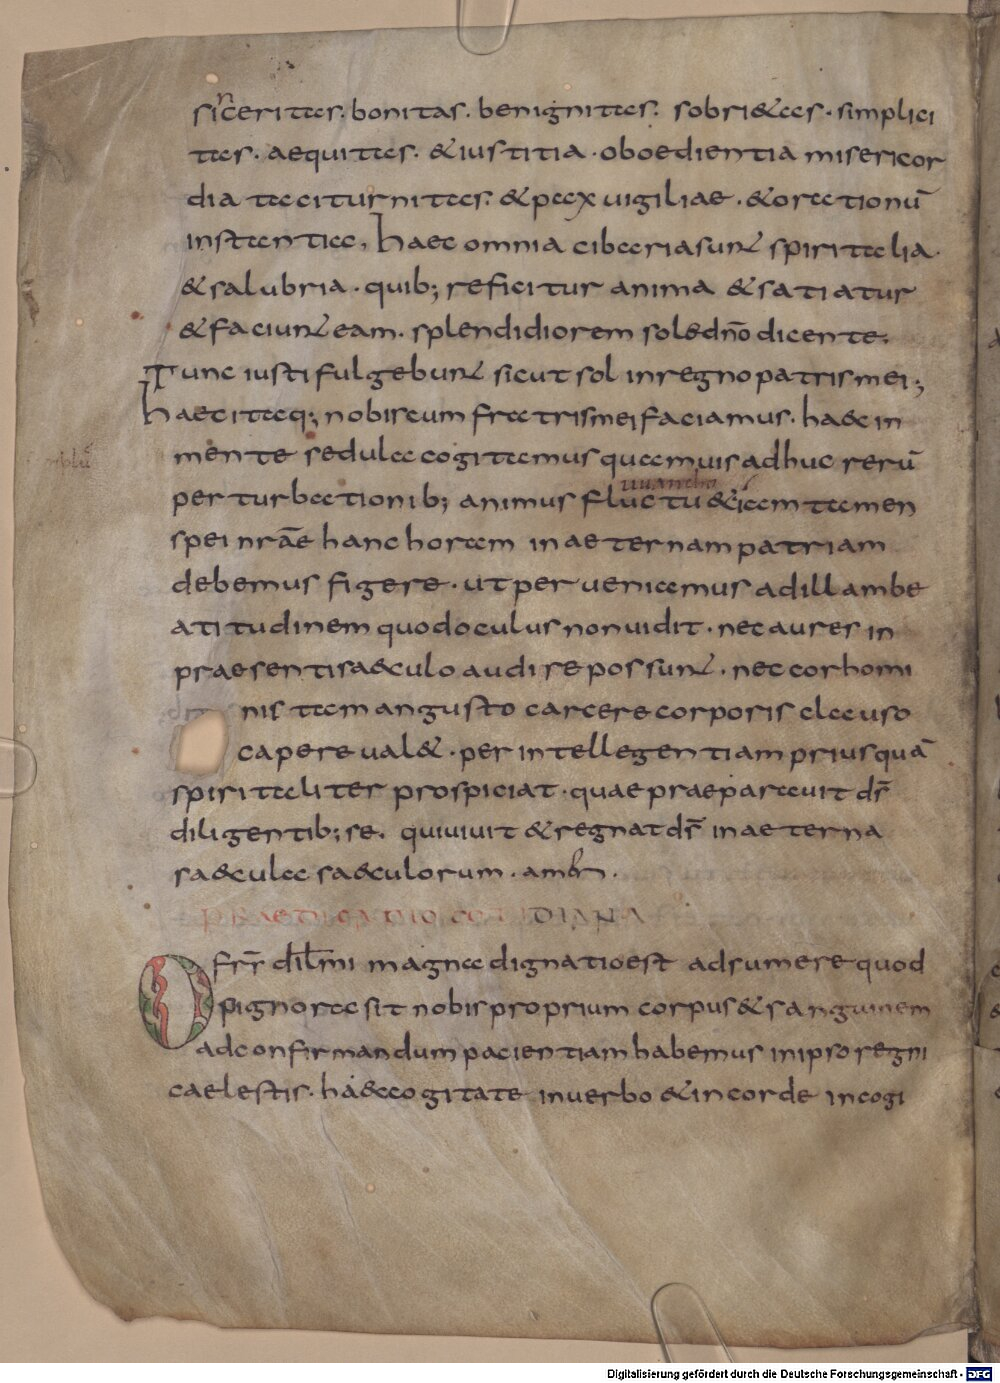 sinceritas. bonitas. benignitas. sobri&as. simplici
tas. aequitas. &iustitia. oboedientia misericor
dia taciturnitas. &pax uigiliae. &orationū
instantia. haec omnia cibaria sunt spiritalia.
&salubria. quib; reficitur anima &satiatur
&faciunt eam. splendidiorem sole dnō dicente.
Tunc iusti fulgebunt sicut sol in regno patris mei;
haec itaq; nobiscum fratris mei faciamus. ha&c in
mente sedula cogitemus quamuis adhuc rerū
perturbationib; animus fluctu&
spei nrāe hanc horam in aeternam patriam
debemus figere. ut perueniamus ad illam be
atitudinem quod oculus non uidit. nec aures in
praesenti sa&culo audire possunt. nec cor homi
nis tam angusto carcere corporis clauso
capere ual&. per intellegentiam priusquā
spiritaliter prospiciat. quae praeparauit ds̄
diligentib; se. qui uiuit &regnat ds̄ in aeterna
sa&cula sa&culorum. amen.
PRAEDICATIO COTIDIANA
O frr̄ dil̄mi magna dignatio est adsumere quod
pignora sit nobis proprium corpus &sanguinem
ad confirmandum pacientiam habemus in ipso regni
caelestis. ha&c cogitate in uerbo &in corde in cogi
Digitalisierung gefördert durch die Deutsche Forschungsgemeinschaft - DFG